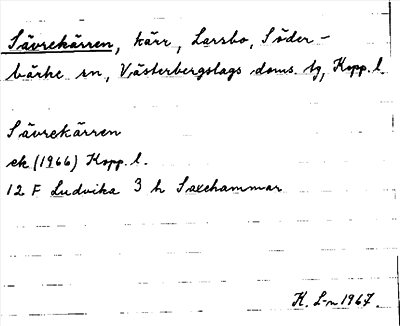 Sävrekärren, kärr, Larsbo, Söder-
bärke sn, Västerbergslags doms. tg, Kopp. l.
Sävrekärren
ek (1966) Kopp. l.
12 F Ludvika 3 h Saxehammar
K. L-n 1967.